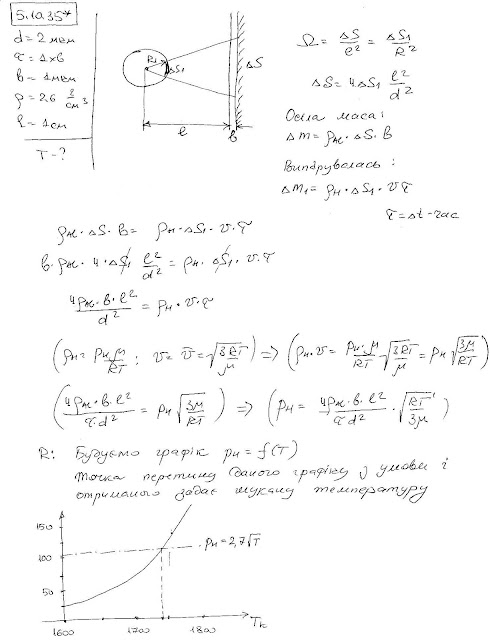 5.10.35*
d = 2 мкм
τ = 1 хв
b = 1 мкм
ρ = 2,6 г/см³
l = 1 см
T - ?
R₁
ΔS₁
ΔS
l
b
Ω = ΔS/l² = ΔS₁/R²
ΔS = 4ΔS₁ l²/d²
Осіла маса:
Δm = ρж·ΔS·b
Випарувалась:
Δm₁ = ρн·ΔS₁·vτ
τ = Δt - час
ρж·ΔS·b = ρн·ΔS₁·v·τ
b·ρж·4·ΔS₁ l²/d² = ρн·ΔS₁·v·τ
4ρж·b·l²/d² = ρн·v·τ
(ρн = pнμ/RT ; v = v̄ = √(3RT/μ)) => (ρн·v = pн·μ/RT √(3RT/μ) = pн √(3μ/RT))
(4ρж·b·l²/τd² = pн √(3μ/RT)) => (pн = 4ρж·b·l²/τd² · √(RT/3μ))
R: Будуємо графік pн = f(T)
Точка перетину даного графіку у умові і
отриманого задає шукану температуру
150
100
50
pн = 2,7√T
1600
1700
1800
T,k